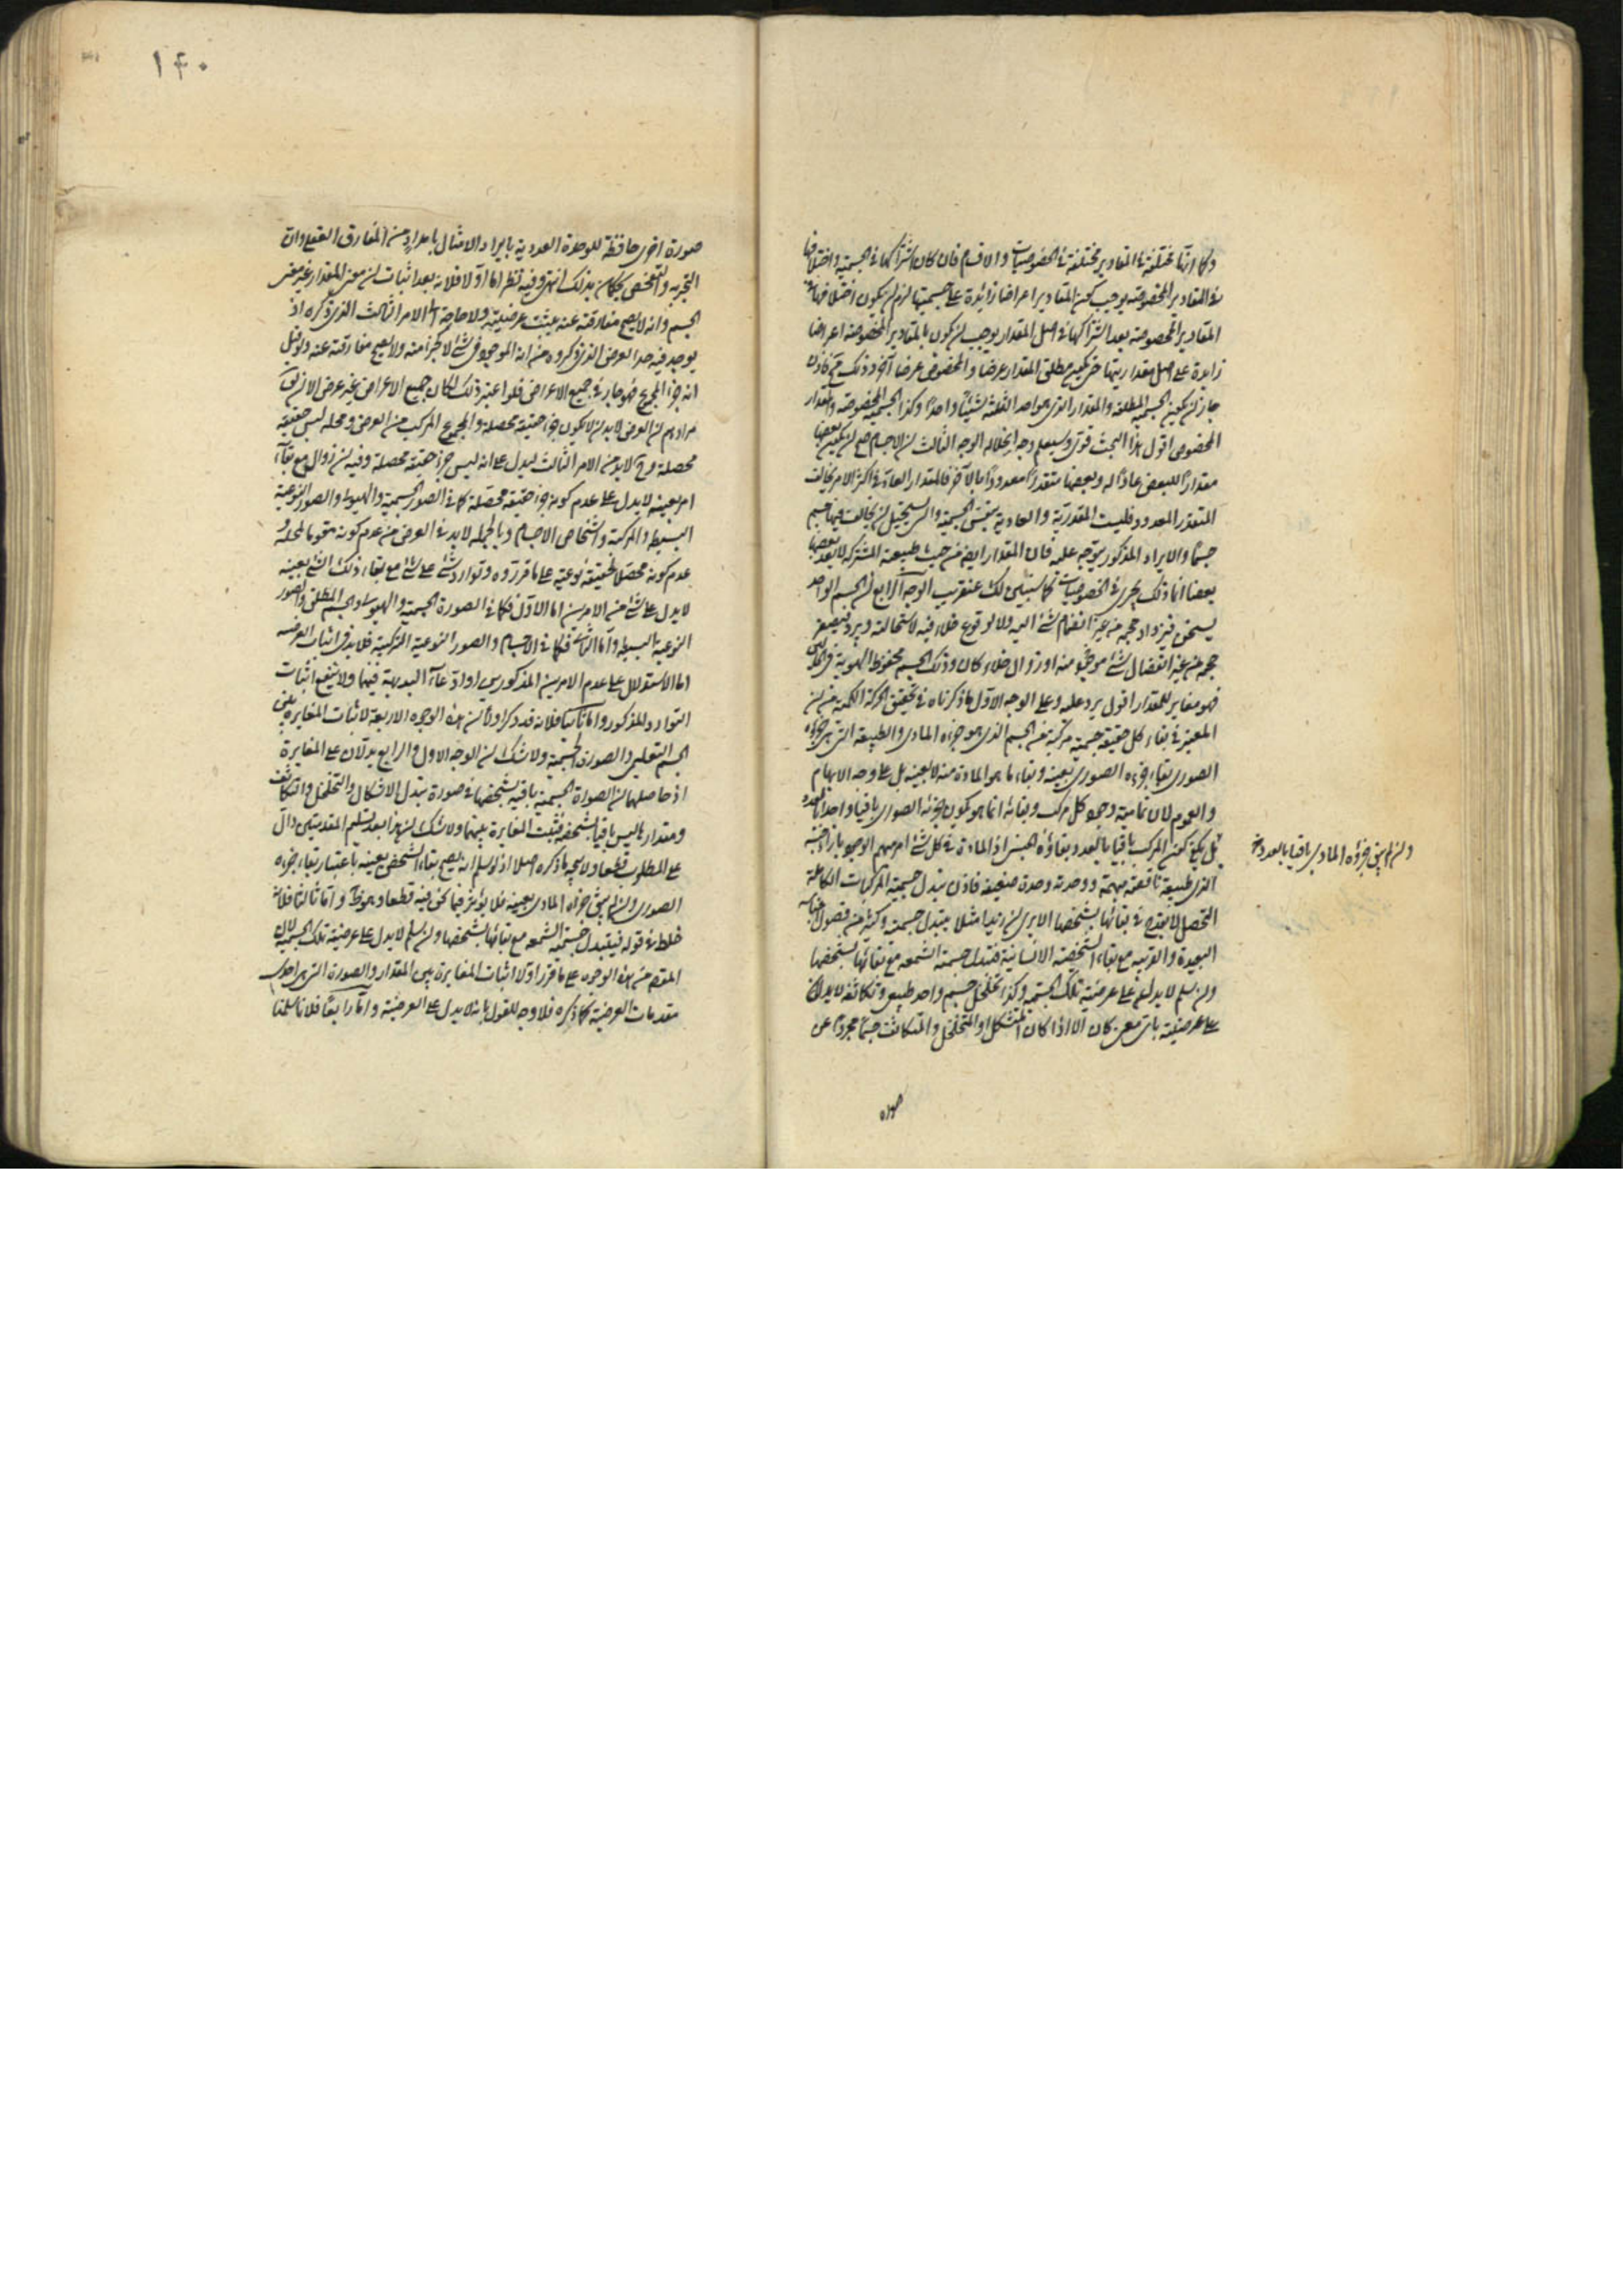 وكما انها مختلفة في المقادير مختلفة في الخصوصيات والاقسام فان كان اشتراكها في الجسمية واختلافها
في المقادير المخصوصة يوجب كون المقادير اعراضا زائدة على جسميتها لزم ان يكون اختلافها في
المقادير المخصوصة بعد اشتراكها في اصل المقدار يوجب ان يكون المقادير المخصوصة اعراضا
زايدة على اصل مقداريتها حتى يكون مطلق المقدار عرضا والمخصوص عرضا آخر وذلك
جاز ان يكون الجسمية المطلقة والمقدار الذي هو احد الثلثة شيئا واحدا وكذا الجسمية المخصوصة والمقدار
المخصوص اقول هذا البحث قوي وسيعلم وجه انحلاله الوجه الثالث ان الاجسام صح ان يكون بعضها
مقدارا للبعض عادا له وبعضها متقدرا معدودا بالآخر فالمقدار العاد في اكثر الامر يخالف
المتقدر المعدود فليست المقدرية والعادية بنفس الجسمية والتي يستحيل ان يخالف فيها جسم
جسما والايراد المذكور يتوجه عليه فان المقدار ايضا من حيث طبيعته المشتركة لا يعد بعضها
بعضا انما ذلك يجري في الخصوصيات كما سيتبين لك عنقريب الوجه الرابع ان الجسم الواحد
يسخن فيزداد حجمه من غير انضمام شئ اليه ولا لوقوع خلاء فيه لاستحالته ويبرد فيصغر
حجمه من غير انفصال شئ منه او زوال خلاء كان وذلك الجسم محفوظ الهوية في الحالين
فهو مغاير للمقدار اقول يرد عليه وعلى الوجه الاول ما ذكرناه في تحقيق الحركة الكمية من ان
المعتبر في بقاء كل حقيقة جسمية مركبة من الجسم الذي هو جزءه المادي والطبيعة التي هي جزءه
الصوري بقاء جزءه الصوري بعينه وبقاء ما هو المادة منه لا بعينه بل على وجه الابهام
والعموم لان تمامية وجود كل مركب وبقائه انما هو بكون جزئه الصوري باقيا واحدا بالعدد
بل يكفي كون المركب باقيا بالعدد بقاؤه الجنسي اذ المادة في كل شئ امر مبهم الوجود بازاء جنسه
الذي طبيعته ناقصة مبهمة ووحدته وحدة ضعيفة فاذن تبدل جسمية المركبات الكاملة
التحصل لا يقدح في بقائها بشخصها الا يرى ان زيدا مثلا يتبدل جسميته وكثير من فصول اجناسه
البعيدة والقريبة مع بقاء الشخصية الانسانية فتبدل جسمية الشمعة مع بقائها بشخصها
وان سلم لا يدل على عرضية تلك الجسمية وكذا تخلخل جسم واحد طبيعي وتكاثفه لا يدلان
على عرضيته باي معنى كان الا اذا كان المتشكل او المتخلخل والمتكاثف جسما مجردا عن
صورة
وان لم يبق جزؤه المادي باقيا بالعدد
١٤٠
صورة اخرى حافظة للوحدة العددية بايراد الامثال بامداد من المفارق العقلي وان
التجربة والتفحص يحكمان بذلك انتهى وفيه نظر اما اولا فلانه بعد اثبات ان معنى المقدار غير معنى
الجسم وانه لا يصح مفارقته عنه يثبت عرضيته ولا حاجة الى الامر الثالث الذي ذكره اذ
يوجد فيه حد العرض الذي ذكروه من انه الموجود في شئ لا كجزء منه ولا يصح مفارقته عنه ولو قيل
انه جزء المجموع فهو جار في جميع الاعراض فلو اعتبر ذلك لكان جميع الاعراض غير عرض الا ان يقال
مرادهم ان العرض لابد ان لا يكون جزء حقيقة محصلة والمجموع المركب من العرض ومحله ليس حقيقة
محصلة وح لابد من الامر الثالث ليدل على انه ليس جزء حقيقة محصلة وفيه ان زوال مع بقاء
امر بعينه لا يدل على عدم كونه جزء حقيقة محصلة كما في الصور الجسمية والهيولى والصور النوعية
البسيطة والمركبة واشخاص الاجسام وبالجملة لابد في العرض من عدم كونه مقوما لمحله و
عدم كونه محصلا لحقيقة نوعية على ما قرروه وتوارد شئ على شئ مع بقاء ذلك الشئ بعينه
لا يدل على شئ من الامرين اما الاول فكما في الصورة الجسمية والهيولى والجسم المطلق والصور
النوعية البسيطة واما الثاني فكما في الاجسام والصور النوعية التركيبية فلا بد في اثبات العرضية
اما الاستدلال على عدم الامرين المذكورين او ادعاء البديهية فيهما ولا ينفع اثبات
التوارد المذكور واما ثانيا فلانه قد ذكر اولا من هذه الوجوه الاربعة لاثبات المغايرة بين
الجسم التعليمي والصورة الجسمية ولا شك ان الوجه الاول والرابع يدلان على المغايرة
اذ حاصلهما ان الصورة الجسمية باقية بشخصها في صورة تبدل الاشكال والتخلخل والتكاثف
ومقدارها ليس باقيا بشخصه فثبت المغايرة بينهما ولا شك ان هذا بعد تسليم المقدمتين دال
على المطلوب قطعا ولا يتجه ما ذكره اصلا اذ لو سلم انه يصح بقاء الشخص بعينه باعتبار بقاء جزءه
الصوري وان لم يبق جزءه المادي بعينه فلا يؤثر فيما نحن فيه قطعا وهو ظ واما ثالثا فلانه
خلط في قوله فيتبدل جسمية الشمعة مع بقائها بشخصها وان سلم لا يدل على عرضية تلك الجسمية لان
المقصود من هذه الوجوه على ما قرر اولا اثبات المغايرة بين المقدار والصورة التي هي احدى
مقدمات العرضية كما ذكره فلا وجه للقول بانه لا يدل على العرضية واما رابعا فلانا سلمنا